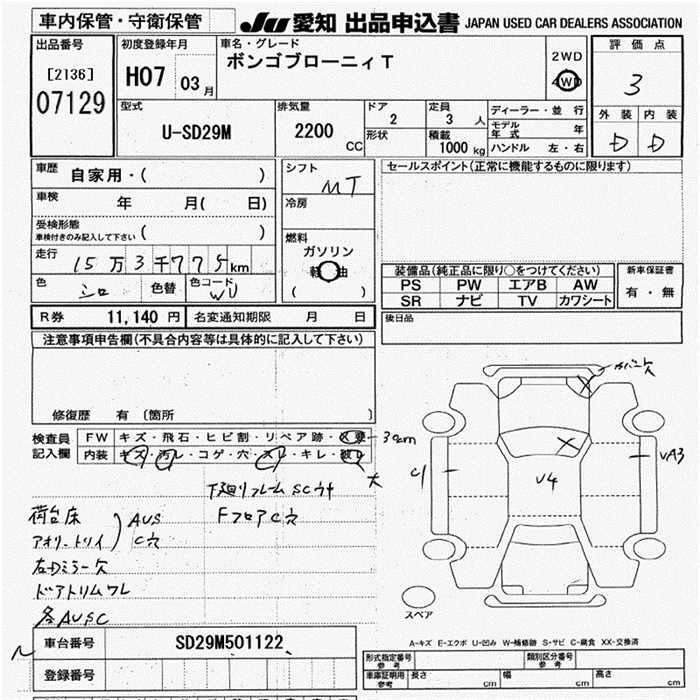 車内保管・守衛保管
JU 愛知 出品申込書 JAPAN USED CAR DEALERS ASSOCIATION
出品番号
[2136]
07129
初度登録年月
H07 03 月
車名・グレード
ボンゴブローニィT
2WD
4WD
評価点
3
外装 内装
D D
型式
U-SD29M
排気量
2200
CC
ドア
2
形状
定員
3 人
積載
1000 kg
ディーラー・並行
モデル年式 年
ハンドル 左・右
車歴
自家用・( )
車検
年 月( 日)
受検形態
車検付きのみ記入して下さい ( )
走行
15万3千775km
色
シロ
色替
色コード
WU
シフト
MT
冷房
燃料
ガソリン
軽油
( )
セールスポイント(正常に機能するものに限ります)
装備品(純正品に限り○をつけてください)
PS PW エアB AW
SR ナビ TV カワシート
新車保証書
有・無
後日品
R券 11,140 円 名変通知期限 月 日
注意事項申告欄(不具合内容等は具体的に記入して下さい)
修復歴 有〔箇所 〕
検査員記入欄
FW キズ・飛石・ヒビ割・リペア跡・
30cm
内装 キズ・汚レ・コゲ・穴・スレ・キレ・破レ
大
下廻リフレームSCサ
FフロアC穴
荷台床
アオリ・トリイ
AUS
C穴
右Dミラー欠
ドアトリムワレ
各AUSC
カバー欠
U4
スペア
A-キズ E-エクボ U-凹み W-補修跡 S-サビ C-腐食 XX-交換済
車台番号 SD29M501122
登録番号
形式指定番号 参考
類別区分番号 参考
車庫証明用 参考
長さ cm 幅 cm 高さ cm